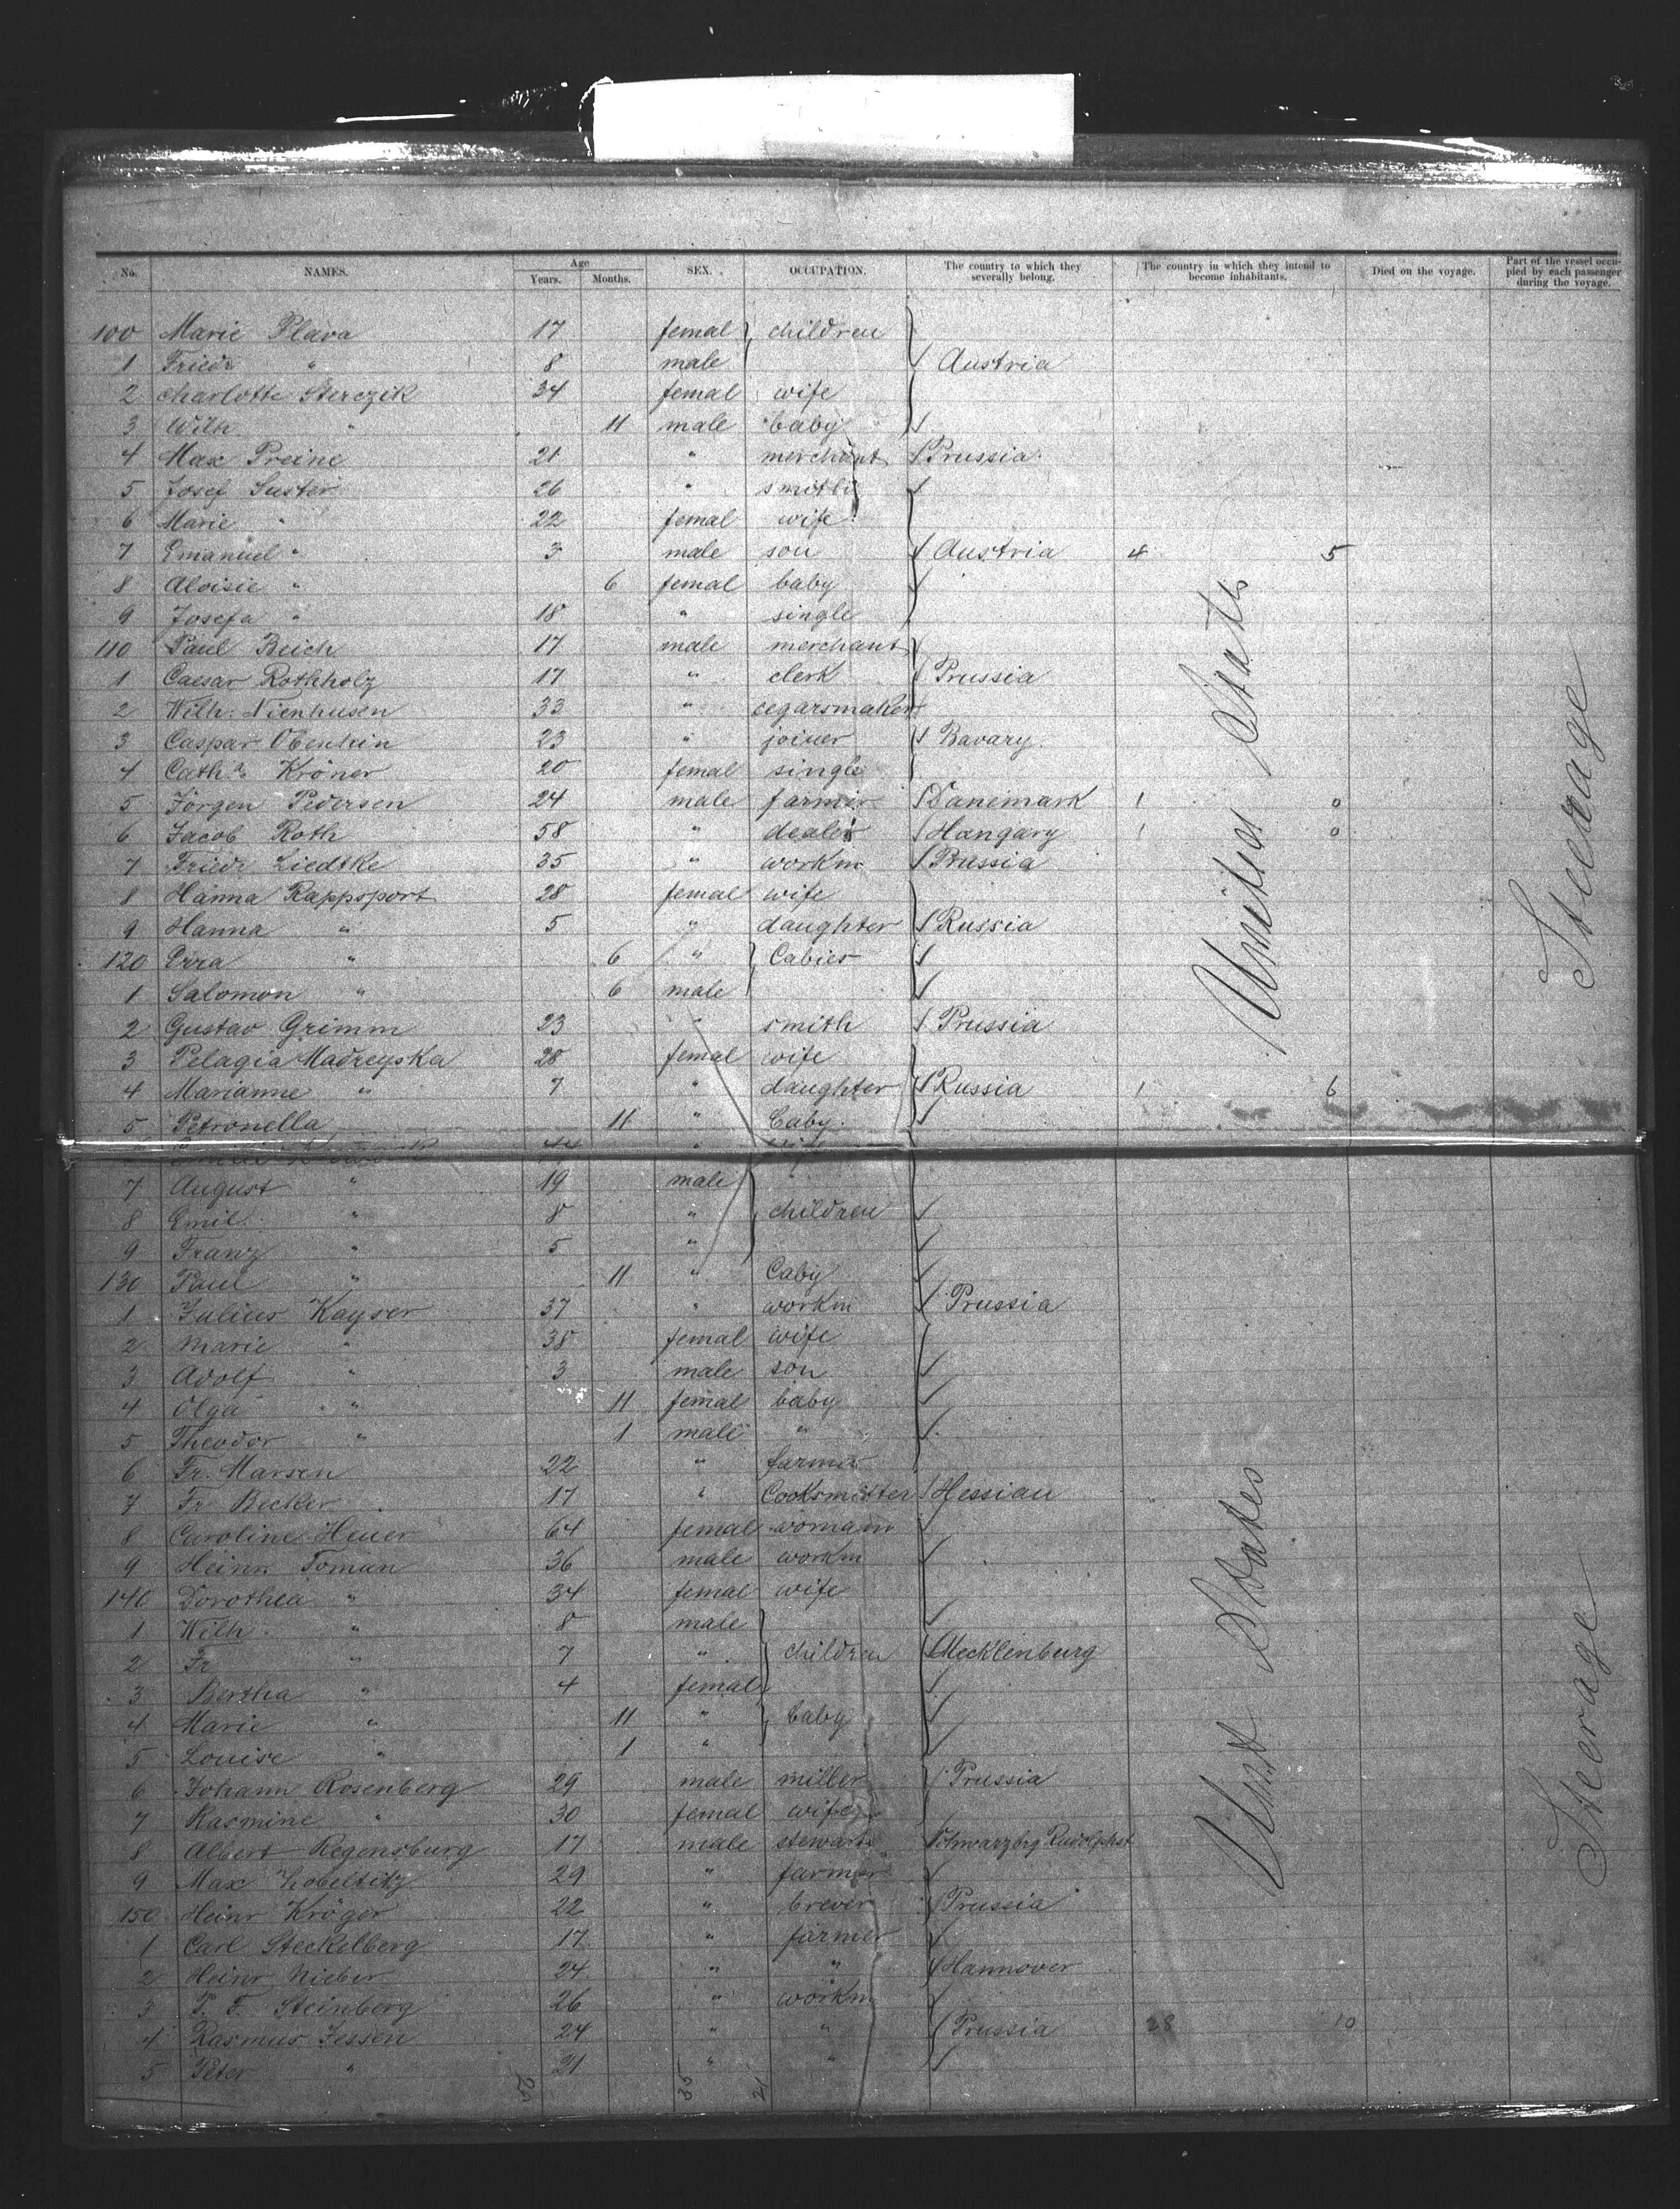 No. NAMES. Age Years. Months. SEX. OCCUPATION. The country to which they severally belong. The country in which they intend to become inhabitants. Died on the voyage. Part of the vessel occupied by each passenger during the voyage.
100 Marie Plava 17 femal } children
1 Friedr " 8 male Austria
2 Charlotte Sterczik 34 femal wife
3 Wilh. " 11 male baby
4 Max Preine 21 " merchant Prussia
5 Josef Suster 26 " smith
6 Marie " 22 femal wife
7 Emanuel " 3 male son Austria 4 5
8 Aloisie " 6 femal baby
9 Josefa " 18 " single
110 Paul Beich 17 male merchant
1 Caesar Rothholz 17 " clerk Prussia
2 Wilh. Nienhusen 33 " cegarsmaker
3 Caspar Obenhin 23 " joiner Bavary
4 Catha Kröner 20 femal single
5 Jörgen Pedersen 24 male farmer Danemark 1 0
6 Jacob Roth 58 " dealer Hangary 1 0
7 Friedr Liedtke 35 " workm Prussia
8 Hanna Rappsport 28 femal wife
9 Hanna " 5 " daughter Russia
120 " 6 " } Cabies
1 Salomon " 6 male
2 Gustav Grimm 23 " smith Prussia
3 Pelagia Madreyska 28 femal wife
4 Marianne " 7 " daughter Russia 1 6
5 Petronella 11 " Caby
7 August " 19 male
8 Emil " 8 " } children
9 Franz " 5 "
130 Paul " 11 " Caby
1 Julius Kayser 37 " workm Prussia
2 Marie " 38 femal wife
3 Adolf " 3 male son
4 Olga " 11 femal baby
5 Theodor " 1 male "
6 Fr. Marsen 22 " farmer
7 Fr Becker 17 " Hessian
8 Caroline Heuer 64 femal womann
9 Heinr. Toman 36 male workm
140 Dorothea " 34 femal wife
1 Wilh. " 8 male
2 Fr " 7 " } children Mecklenburg
3 Bertha " 4 femal
4 Marie " 11 " } baby
5 Louise " 1 "
6 Johann Rosenberg 29 male miller Prussia
7 Rasmine " 30 femal wife
8 Albert Regensburg 17 male stewart Schwarzbrg Rudolphst
9 Max Zobeltitz 29 " farmer
150 Heinr Kröger 22 " brever Prussia
1 Carl Steckelberg 17 " farmer
2 Heinr Nieber 24 " " Hannover
3 P. F. Steinberg 26 " workm
4 Rasmus Jessen 24 " " Prussia 28 10
5 Peter " 21 " "
United Staats
Steerage
Unit States
Steerage